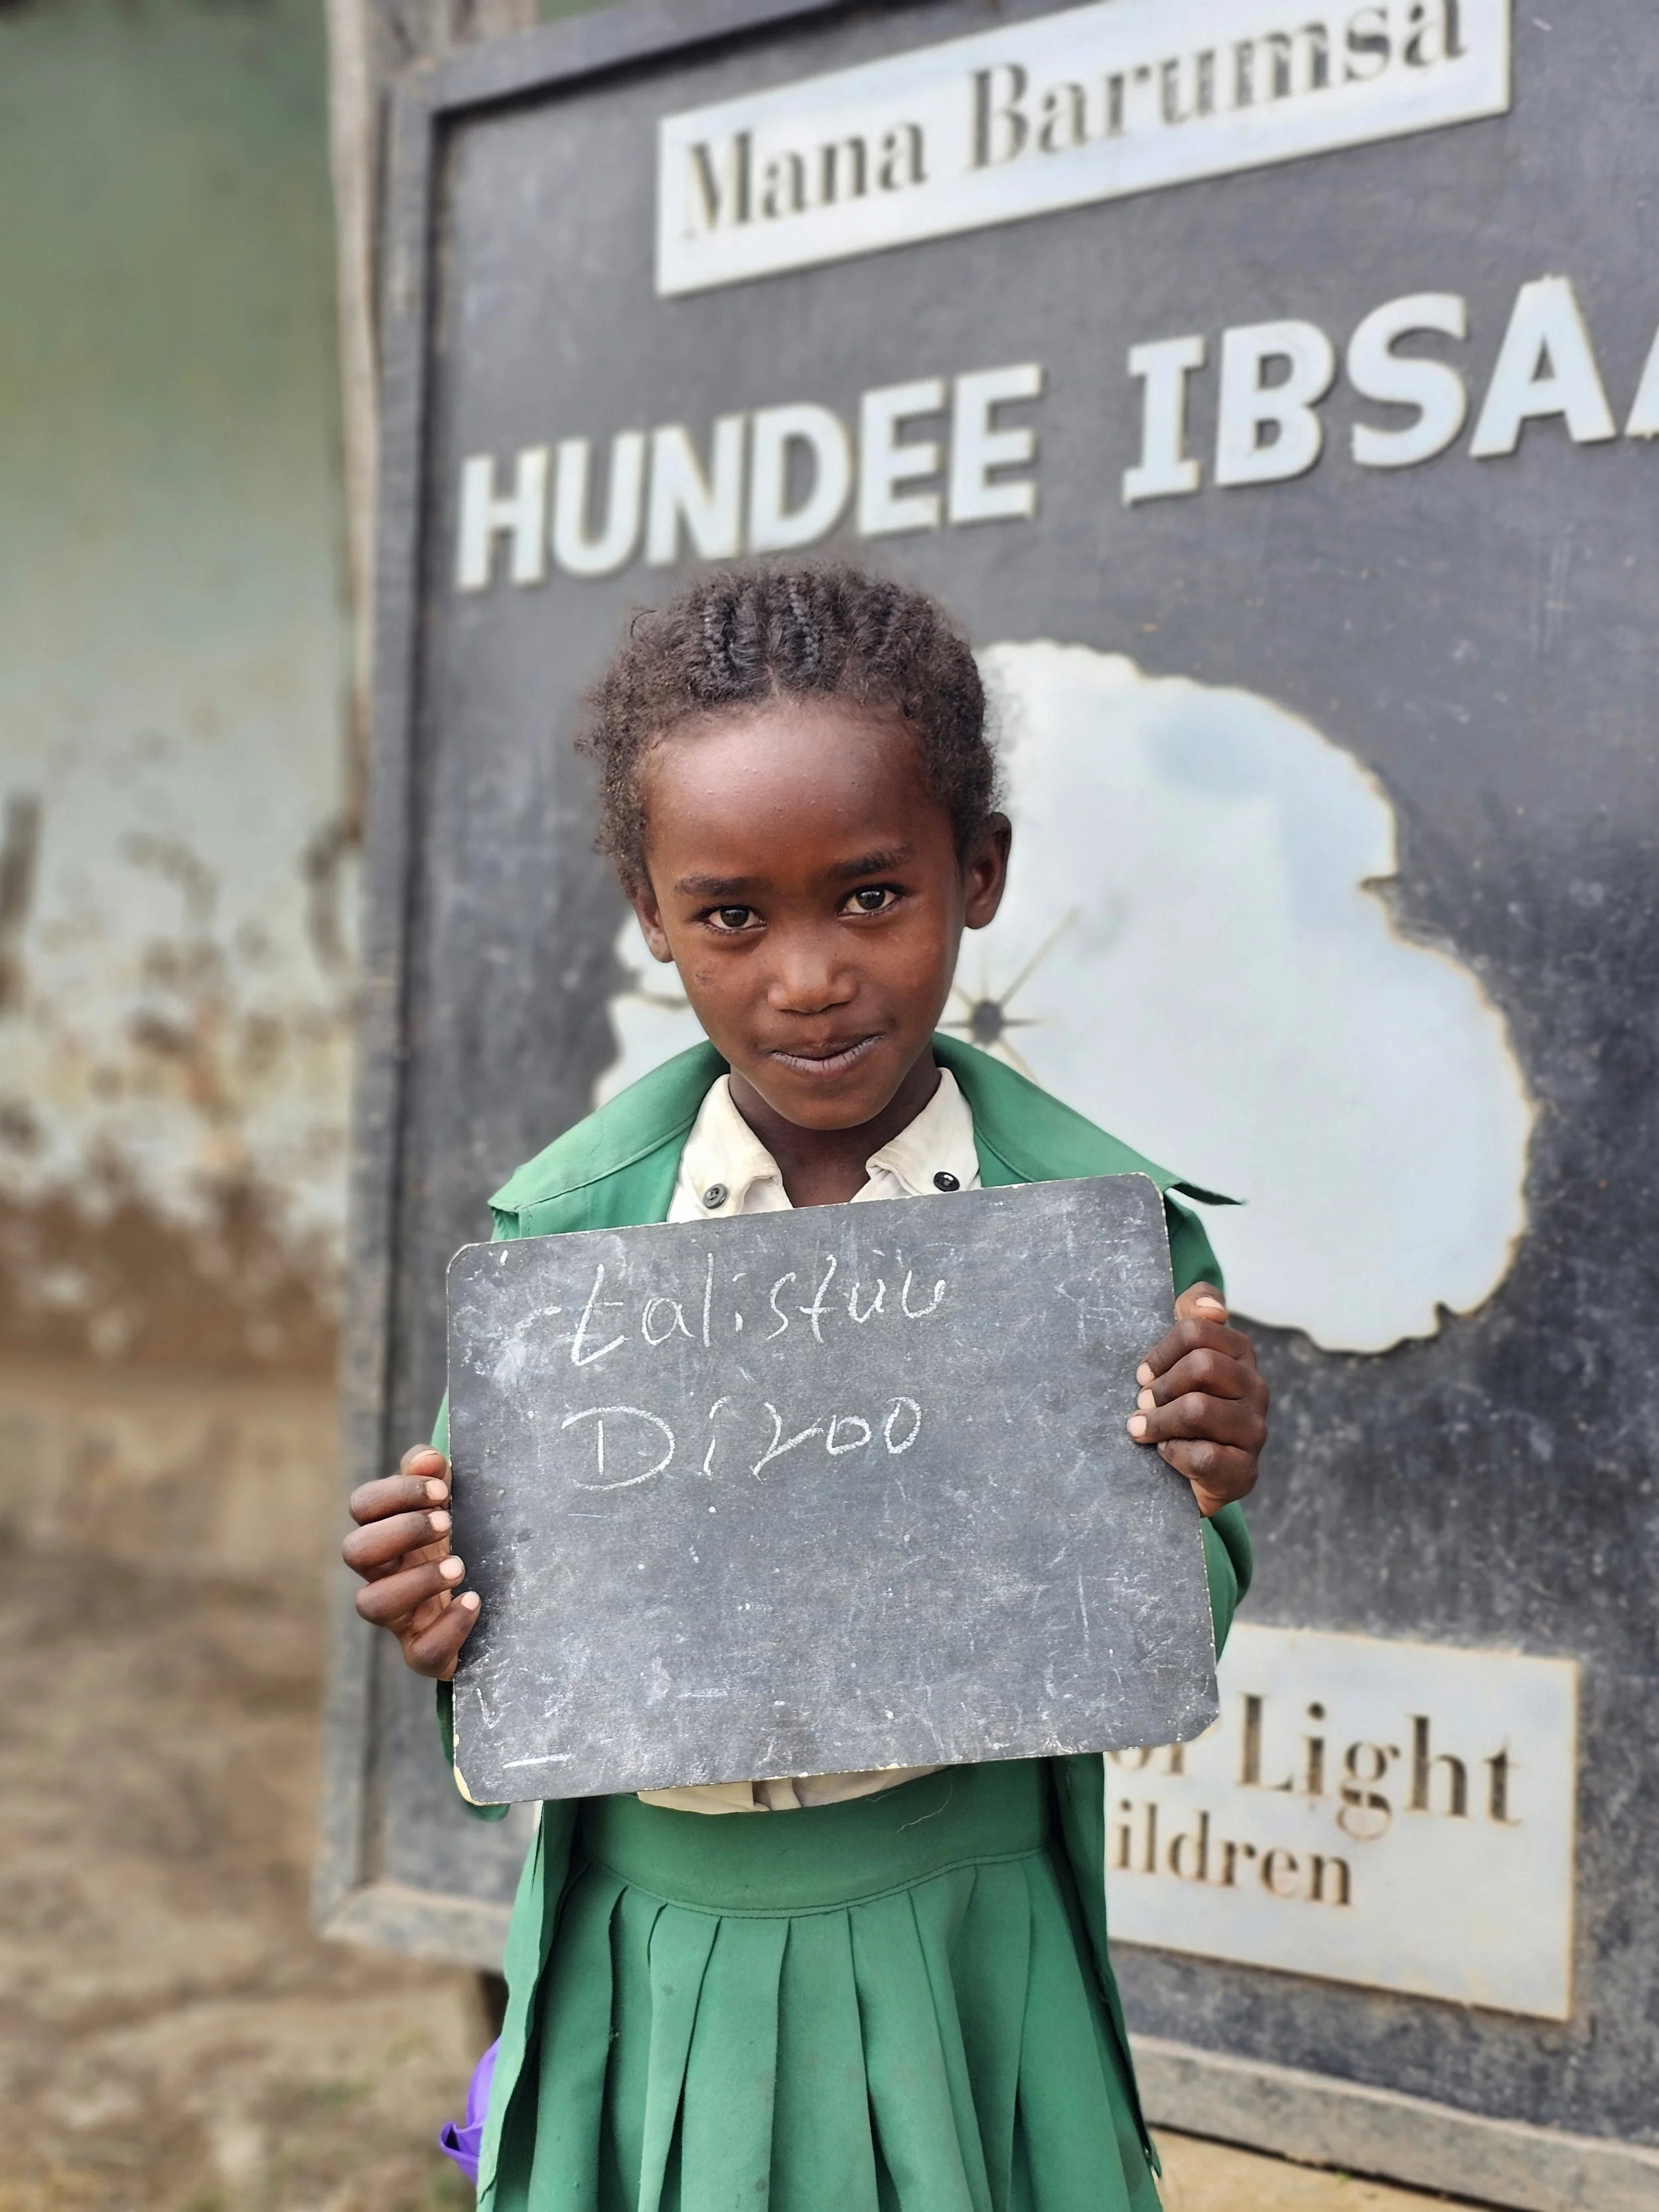 Mana Barumsa
HUNDEE IBSAA
Lalistuu
Diroo
Light
ildren